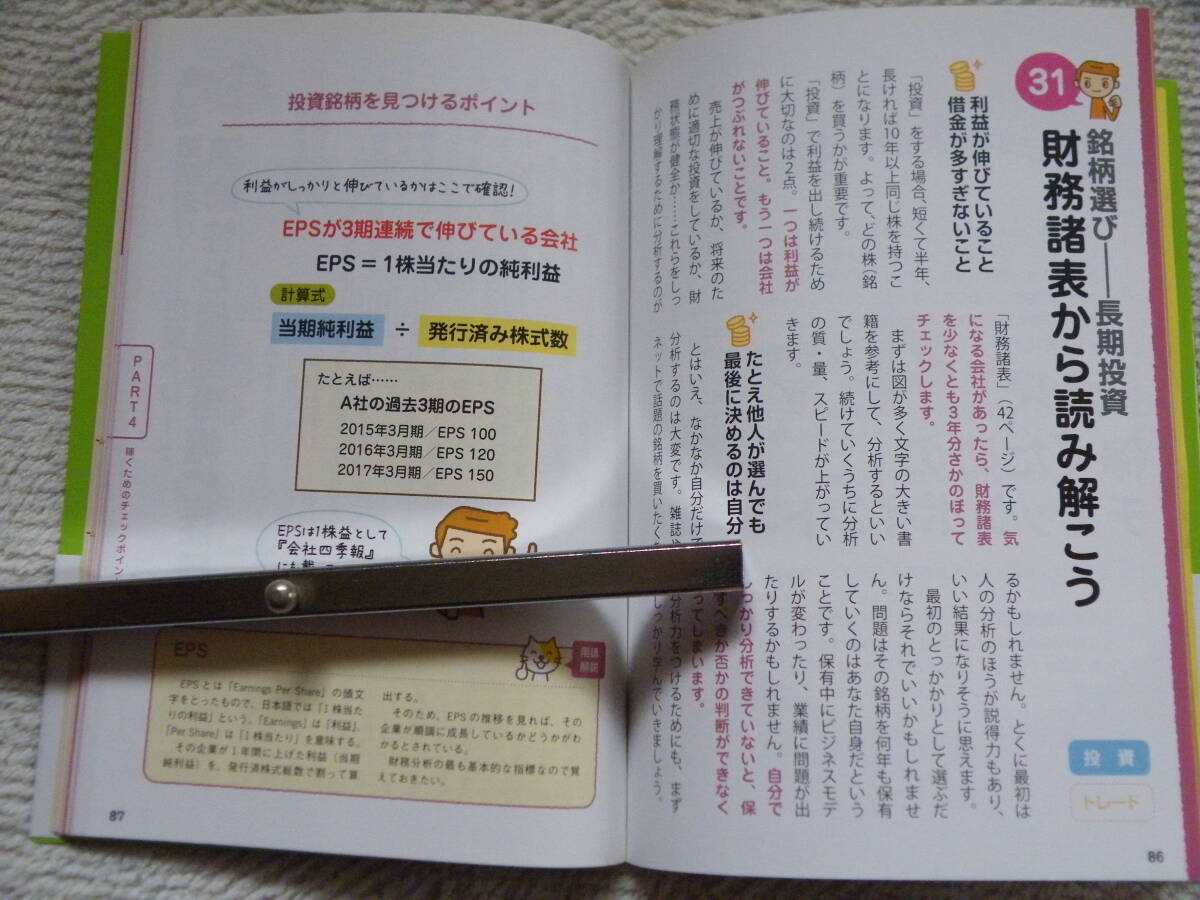 31
銘柄選び――長期投資
財務諸表から読み解こう
利益が伸びていること
借金が多すぎないこと
「投資」をする場合、短くて半年、
長ければ10年以上同じ株を持つこ
とになります。よって、どの株（銘
柄）を買うかが重要です。
「投資」で利益を出し続けるため
に大切なのは2点。一つは利益が
伸びていること。もう一つは会社
がつぶれないことです。
売上が伸びているか、将来のた
めに適切な投資をしているか、財
務状態が健全か……これらをしっ
かり理解するために分析するのが
「財務諸表」（42ページ）です。気
になる会社があったら、財務諸表
を少なくとも3年分さかのぼって
チェックします。
まずは図が多く文字の大きい書
籍を参考にして、分析するといい
でしょう。続けていくうちに分析
の質・量、スピードが上がってい
きます。
たとえ他人が選んでも
最後に決めるのは自分
とはいえ、なかなか自分だけで
分析するのは大変です。雑誌や
ネットで話題の銘柄を買いたく
るかもしれません。とくに最初は
人の分析のほうが説得力もあり、
いい結果になりそうに思えます。
最初のとっかかりとして選ぶだ
けならそれでいいかもしれませ
ん。問題はその銘柄を何年も保有
していくのはあなた自身だという
ことです。保有中にビジネスモデ
ルが変わったり、業績に問題が出
たりするかもしれません。自分で
しっかり分析できていないと、保
すべきか否かの判断ができなく
ってしまいます。
分析力をつけるためにも、まず
しっかり学んでいきましょう。
投資
トレード
86
投資銘柄を見つけるポイント
利益がしっかりと伸びているかはここで確認！
EPSが3期連続で伸びている会社
EPS＝1株当たりの純利益
計算式
当期純利益 ÷ 発行済み株式数
たとえば……
A社の過去3期のEPS
2015年3月期／EPS 100
2016年3月期／EPS 120
2017年3月期／EPS 150
EPSは1株益として
『会社四季報』
PART4
稼ぐためのチェックポイン
EPS
用語
解説
EPSとは「Earnings Per Share」の頭文
字をとったもので、日本語では「1株当た
りの利益」という。「Earnings」は「利益」、
「Per Share」は「1株当たり」を意味する。
その企業が1年間に上げた利益（当期
純利益）を、発行済株式総数で割って算
出する。
そのため、EPSの推移を見れば、その
企業が順調に成長しているかどうかがわ
かるとされている。
財務分析の最も基本的な指標なので覚
えておきたい。
87